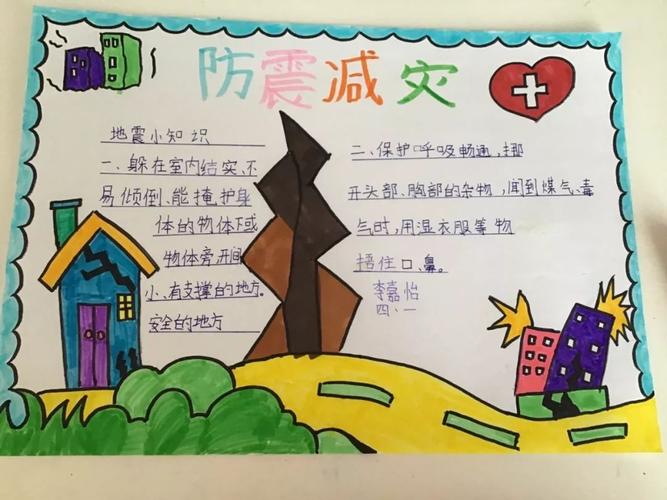 防震减灾
地震小知识
一、躲在室内结实、不
易倾倒、能掩护身
体的物体下或
物体旁、开间
小、有支撑的地方。
安全的地方
二、保护呼吸畅通，挪
开头部、胸部的杂物，闻到煤气、毒
气时，用湿衣服等物
捂住口、鼻。
李嘉怡
四、一